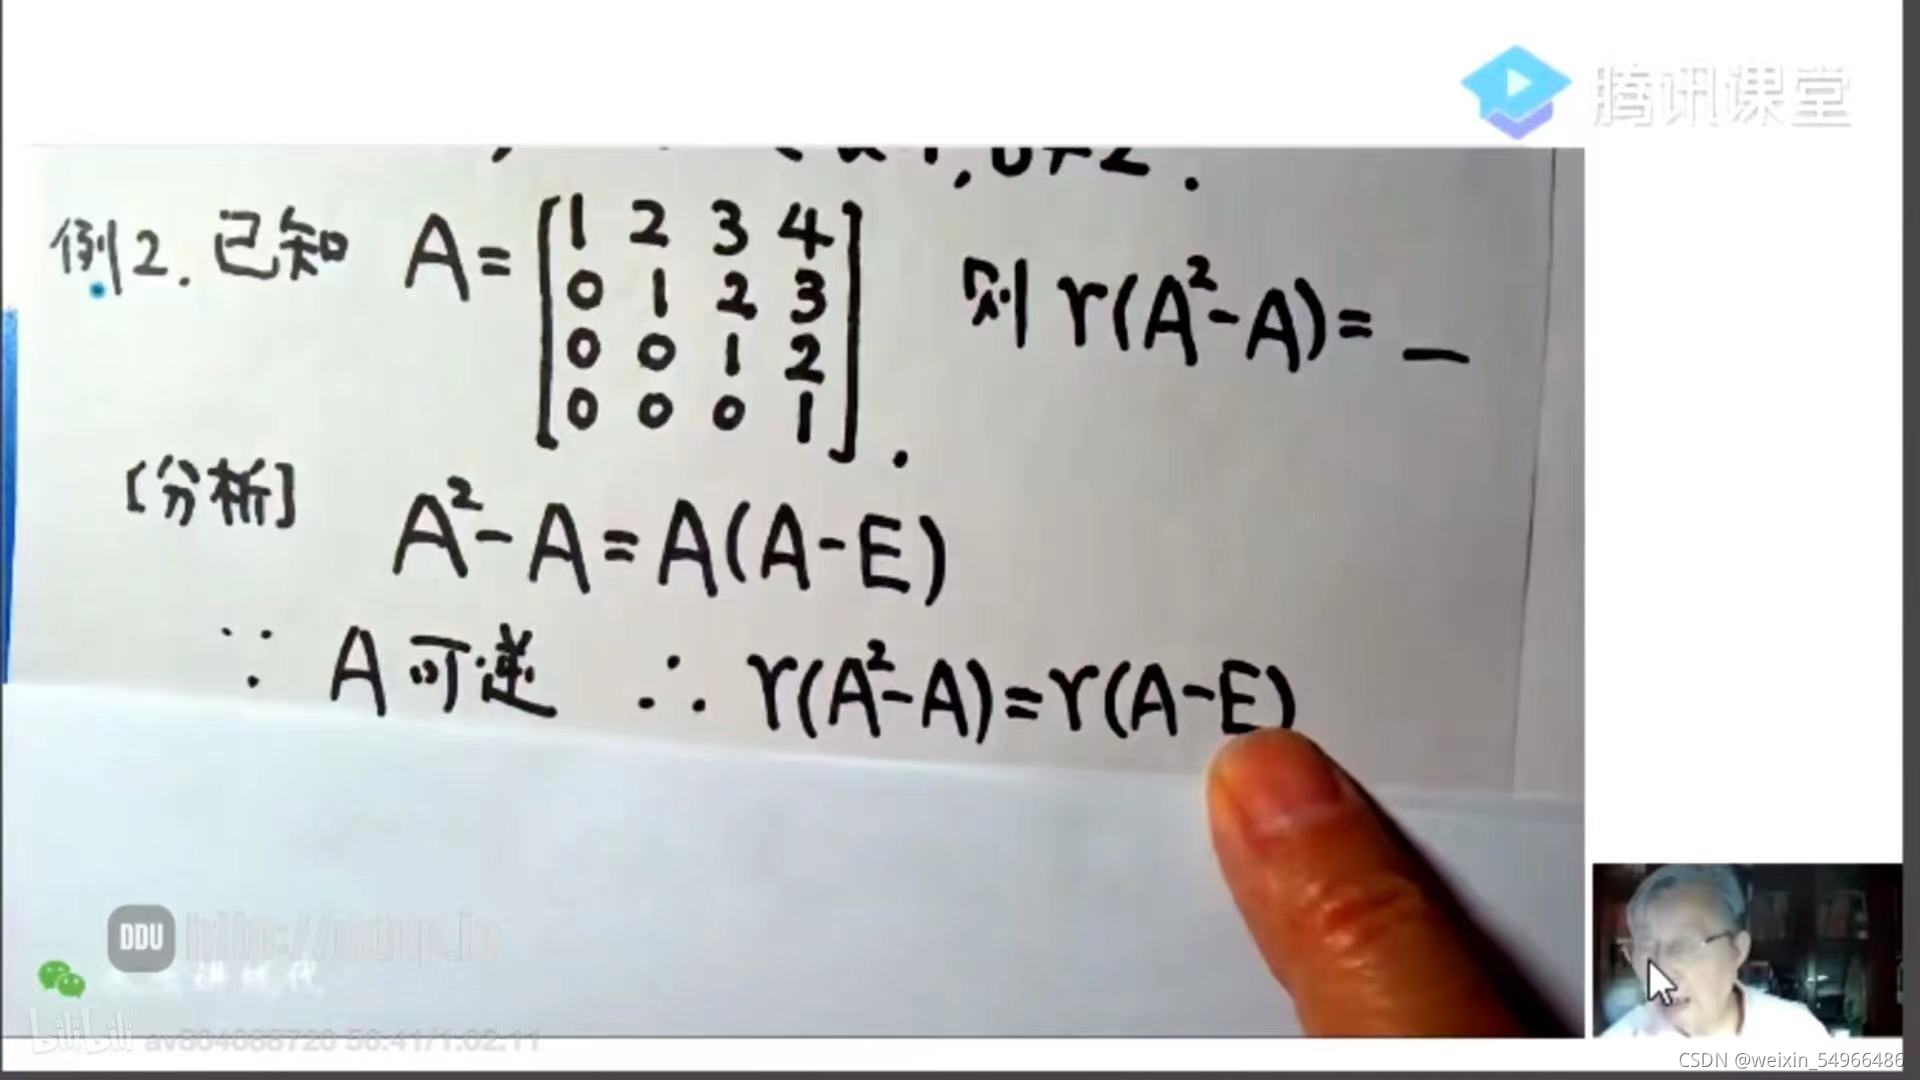 腾讯课堂
例2. 已知 A = [1 2 3 4
0 1 2 3
0 0 1 2
0 0 0 1]. 则 r(A²-A)= _
[分析]
A²-A=A(A-E)
∵ A可逆 ∴ r(A²-A)=r(A-E)
DDU
讲线代
bilibili av804088720 56:41/1:02:11
CSDN @weixin_54966486